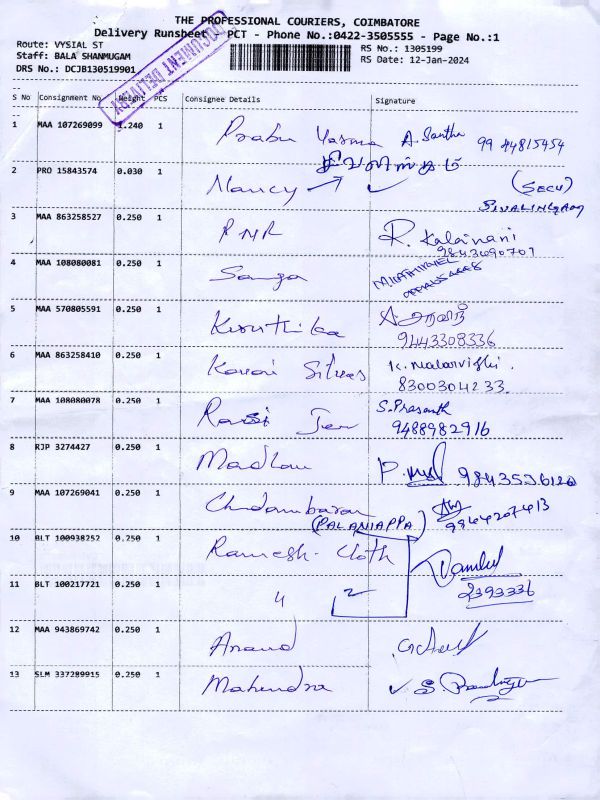 THE PROFESSIONAL COURIERS, COIMBATORE
Delivery Runsheet - PCT - Phone No.:0422-3505555 - Page No.:1
Route: VYSIAL ST
Staff: BALA SHANMUGAM
DRS No.: DCJB130519901
RS No.: 1305199
RS Date: 12-Jan-2024
DOCUMENT DELIVERY
S No Consignment No Weight PCS Consignee Details Signature
1 MAA 107269099 1.240 1 Prabu Varma A. Santha 99 44815454
சிவலிங்கம்
2 PRO 15843574 0.030 1 Nancy → ✓ (SECU)
SIVALINGAM
3 MAA 863258527 0.250 1 RMR R. Kalaivani
9843090707
4 MAA 108080081 0.250 1 Sanga
5 MAA 570805591 0.250 1 Kiruthika
9443308336
6 MAA 863258410 0.250 1 Kovai Silvers K. Malarvizhi.
8300304233.
7 MAA 108080078 0.250 1 S. Prasanth
9488982916
8 RJP 3274427 0.250 1 Madhav 9843536120
9 MAA 107269041 0.250 1 Chidambaram
(PALANIAPPA) 9944207413
10 BLT 100938252 0.250 1 Ramesh Cloth
11 BLT 100217721 0.250 1 " 2 2393336
12 MAA 943869742 0.250 1 Anand
13 SLM 337289915 0.250 1 Mahendra ✓ S.